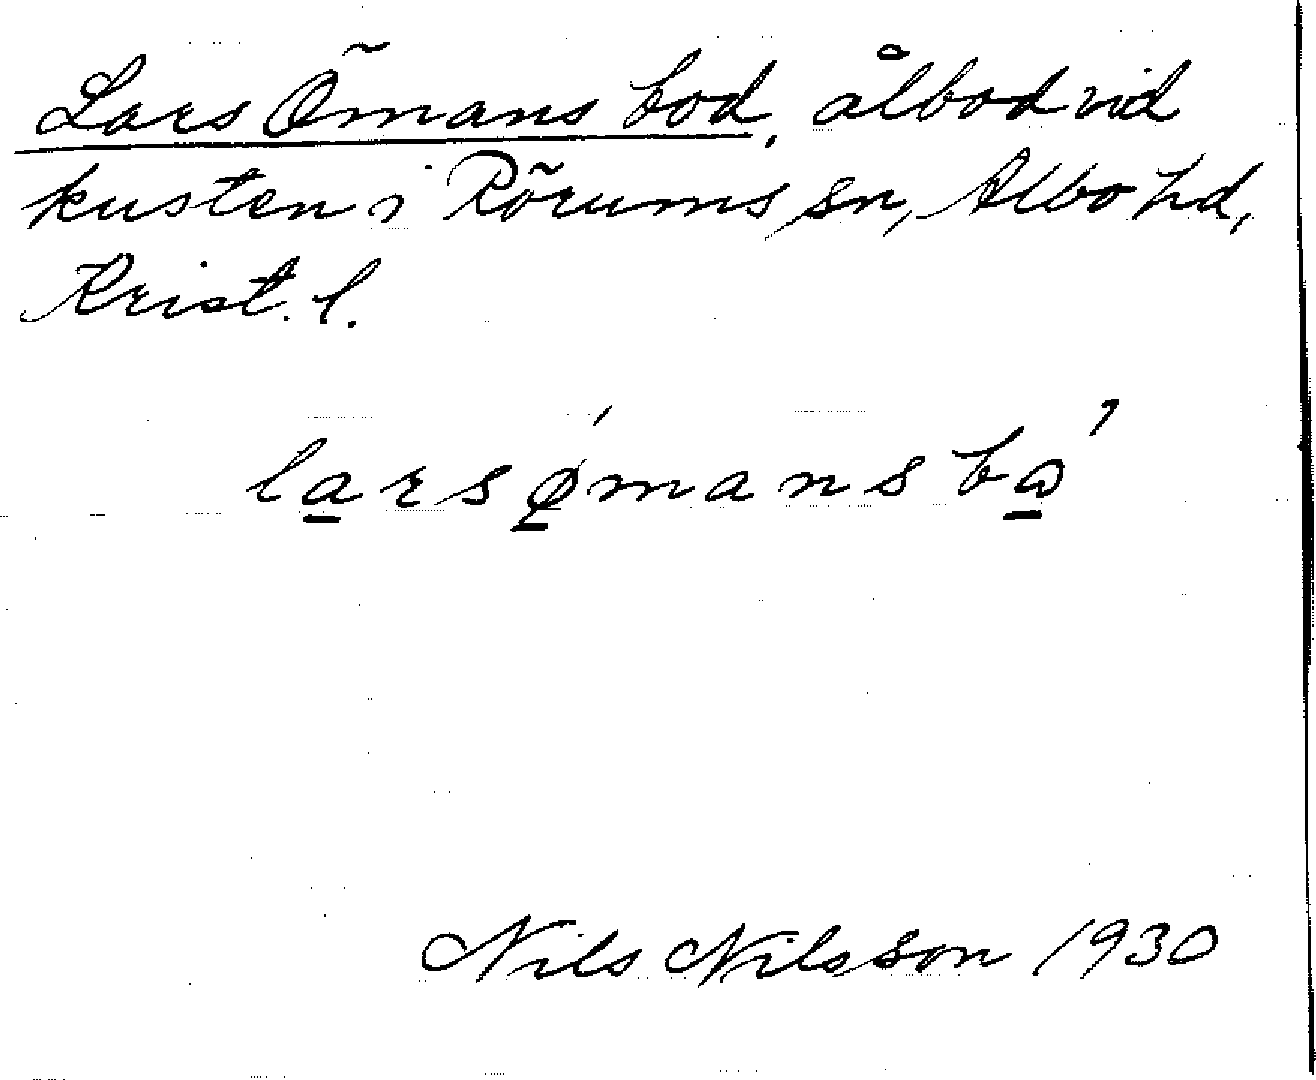 Lars Ömans bod, ålbod vid
kusten i Rörums sn, Albo hd,
Krist. l.
lars ǿmans bώ̲
Nils Nilsson 1930